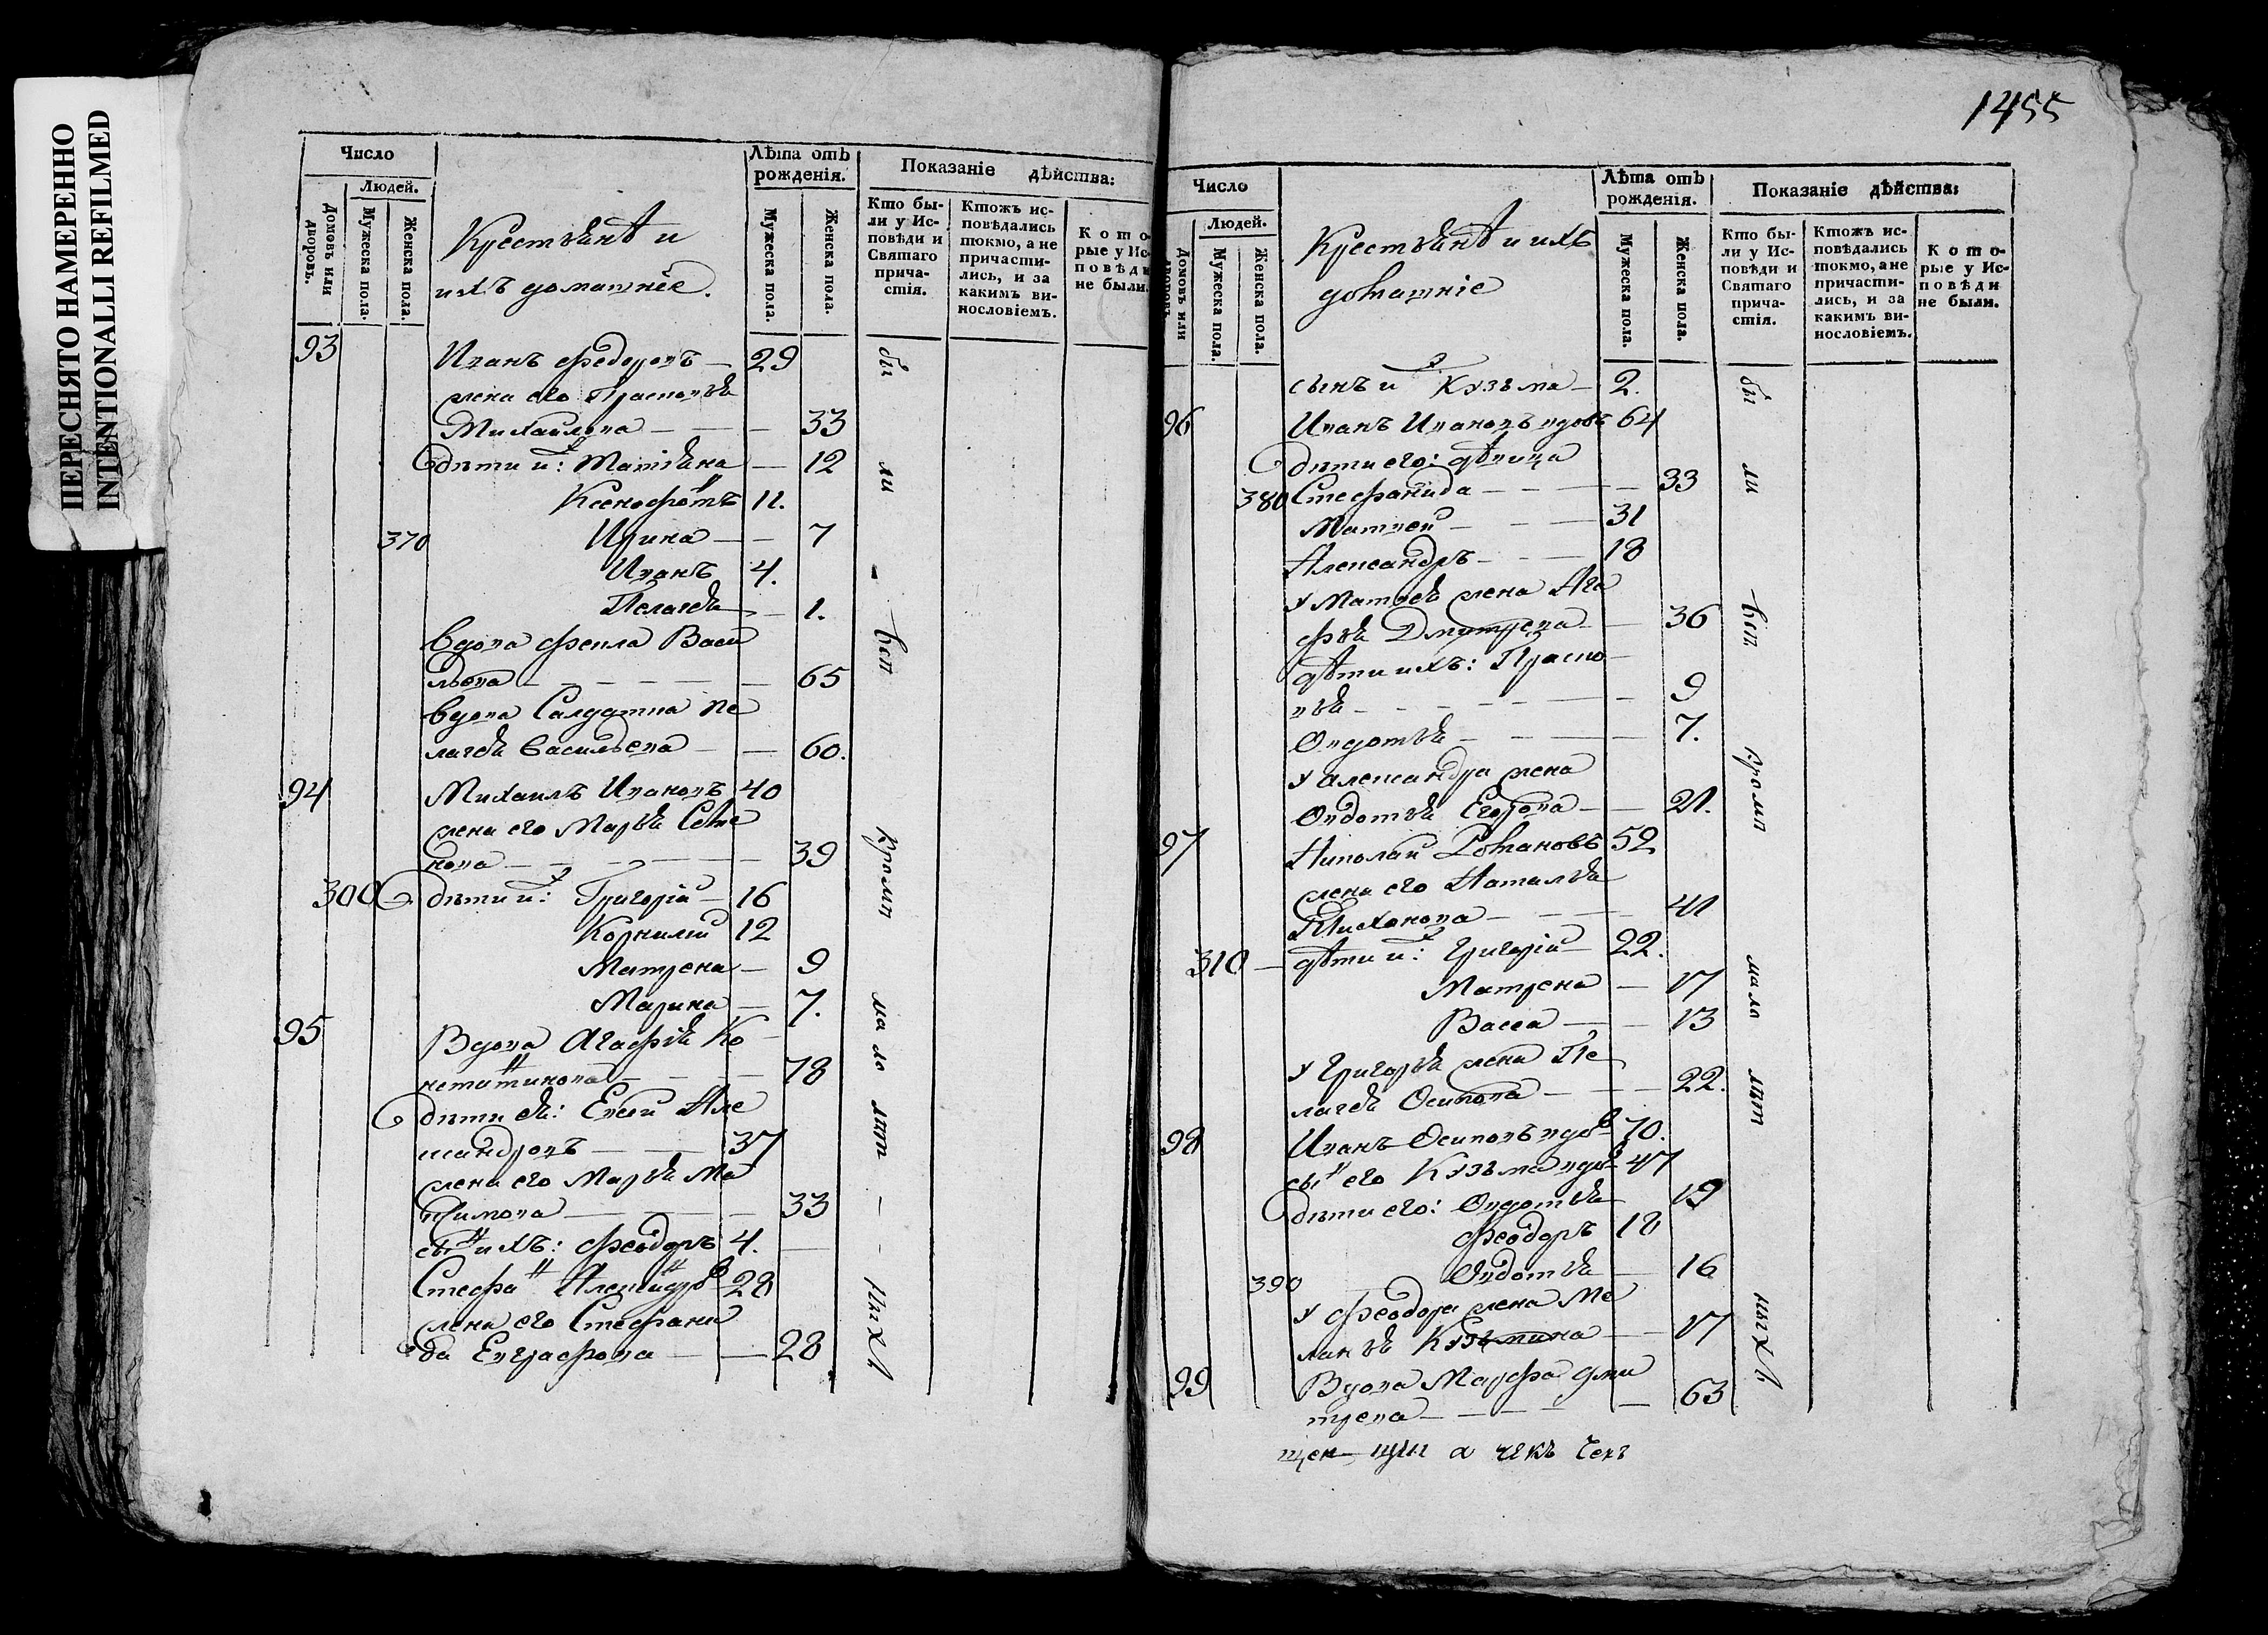 ПЕРЕСНЯТО НАМЕРЕННО
INTENTIONALLI REFILMED
1455
Число
Людей.
Домовъ или дворовъ.
Мужеска пола.
Женска пола.
Крестьянѣ и
ихъ домашніе.
Лѣта отъ рожденія.
Мужеска пола.
Женска пола.
Показаніе дѣйства:
Кто были у Исповѣди и Святаго причастія.
Ктожъ исповѣдались токмо, а не причастились, и за какимъ винословіемъ.
Которые у Исповѣди не были.
93 Иванъ Федоровъ — 29
жена его Прасковья
Михайлова — — — 33
дѣти и х: Татіяна — 12
Ксенофонтъ 11.
370 Ирина — — 7
Иванъ 4.
Пелагея — 1.
Вдова Фекла Васи
льева — — — — — 65
Вдова Салдатка Пе
лагея Васильева — — 60.
94 Михаилъ Ивановъ 40
жена его Марья Семе
нова — — — — — 39
300 дѣти и х: Григорій — 16
Корнилій 12
Матрена — 9
Марина — 7.
95 Вдова Агафія Ко
нстантинова — — — 78
дѣти ея: Евсей Але
ксандровъ — — 37
жена его Марья Ма
ксимова — — — 33
сынъ ихъ: Феодоръ 4.
Стефанъ Александровъ 28
жена его Стефани
да Евграфова — — 28
бы
ли
—
всѣ
кромѣ
мало
лѣт
—
ныхъ
Число
Людей.
Домовъ или дворовъ.
Мужеска пола.
Женска пола.
Крестьянѣ и ихъ
домашніе
Лѣта отъ рожденія.
Мужеска пола.
Женска пола.
Показаніе дѣйства:
Кто были у Исповѣди и Святаго причастія.
Ктожъ исповѣдались токмо, а не причастились, и за какимъ винословіемъ.
Которые у Исповѣди не были.
сынъ и х Кузьма — 2.
96 Иванъ Ивановъ вдовъ 64
дѣти его: дѣвица
380 Стефанида — — — — 33
Матвей — — — 31
Александръ — — — 18
у Матвея жена Ага
фья Дмитрева — — 36
дѣти ихъ: Праско
вья — — — — — — 9
Овдотья — — — — 7.
у Александра жена
Овдотья Егорова — — 21.
97 Николай Романовъ 52
жена его Наталья
Тихонова — — — — 41
310 — дѣти и х: Григорій — 22.
Матрена — 17
Васса — — 13
у Григорья жена Пе
лагея Осипова — — — 22.
98 Иванъ Осиповъ вдов 70.
сынъ его Кузьма вдов 47
дѣти его: Овдотья 19
Феодоръ 18
390 Овдотья — 16
у Феодора жена Ме
ланья Кузьмина — — 17
99 Вдова Марфа Дми
трева — — — — — 63
бы
ли
всѣ
кромѣ
мало
лѣт
ныхъ